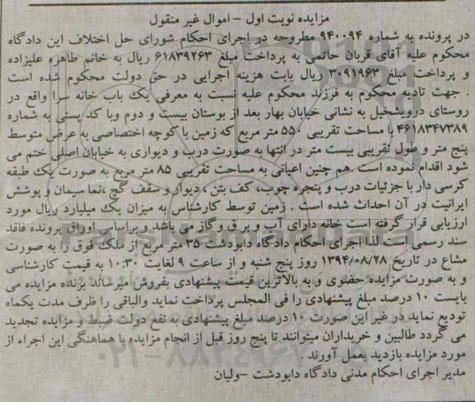 مزایده نوبت اول – اموال غیر منقول
در پرونده به شماره ۹۴۰۰۹۴ مطروحه در اجرای احکام شورای حل اختلاف این دادگاه
محکوم علیه آقای قربان حاتمی به پرداخت مبلغ ۶۱۸۳۹۲۶۳ ریال به خانم طاهره علیزاده
و پرداخت مبلغ ۳۰۹۱۹۶۳ ریال بابت هزینه اجرایی در حق دولت محکوم شده است
. جهت تادیه محکوم به فرزند محکوم علیه نسبت به معرفی یک باب خانه سرا واقع در
روستای درویشخیل به نشانی خیابان بهار بعد از بوستان بیست و دوم وبا کد پستی به شماره
۴۶۱۸۳۴۷۳۸۹ با مساحت تقریبی ۵۵۰ متر مربع که زمین با کوچه اختصاصی به عرض متوسط
پنج متر و طول تقریبی بیست متر در انتها به صورت درب و دیواری به خیابان اصلی ختم می
شود اقدام نموده است .هم چنین اعیانی به مساحت تقریبی ۸۵ متر مربع به صورت یک طبقه
کرسی دار با جزئیات درب و پنجره چوب، کف بتن ، دیوار و سقف گچ ،نما سیمان و پوشش
ایرانیت در آن احداث شده است . زمین توسط کارشناس به میزان یک میلیارد ریال مورد
ارزیابی قرار گرفته است خانه دارای آب و برق و گاز می باشد و براساس اوراق پرونده فاقد
سند رسمی است لذا اجرای احکام دادگاه دابودشت ۳۵ متر مربع از ملک فوق را به صورت
مشاع در تاریخ ۱۳۹۴/۰۸/۲۸ روز پنج شنبه و از ساعت ۹ لغایت ۱۰:۳۰ به قیمت کارشناسی
و به صورت مزایده حضوری و به بالاترین قیمت پیشنهادی بفروش میرساند برنده مزایده می
بایست ۱۰ درصد مبلغ پیشنهادی را فی المجلس پرداخت نماید والباقی را ظرف مدت یکماه
تودیع نماید در غیر این صورت ۱۰ درصد مبلغ پیشنهادی به نفع دولت ضبط و مزایده تجدید
می گردد طالبین و خریداران میتوانند تا پنج روز قبل از انجام مزایده با هماهنگی این اجراء از
مورد مزایده بازدید بعمل آورند
مدیر اجرای احکام مدنی دادگاه دابودشت –ولیان